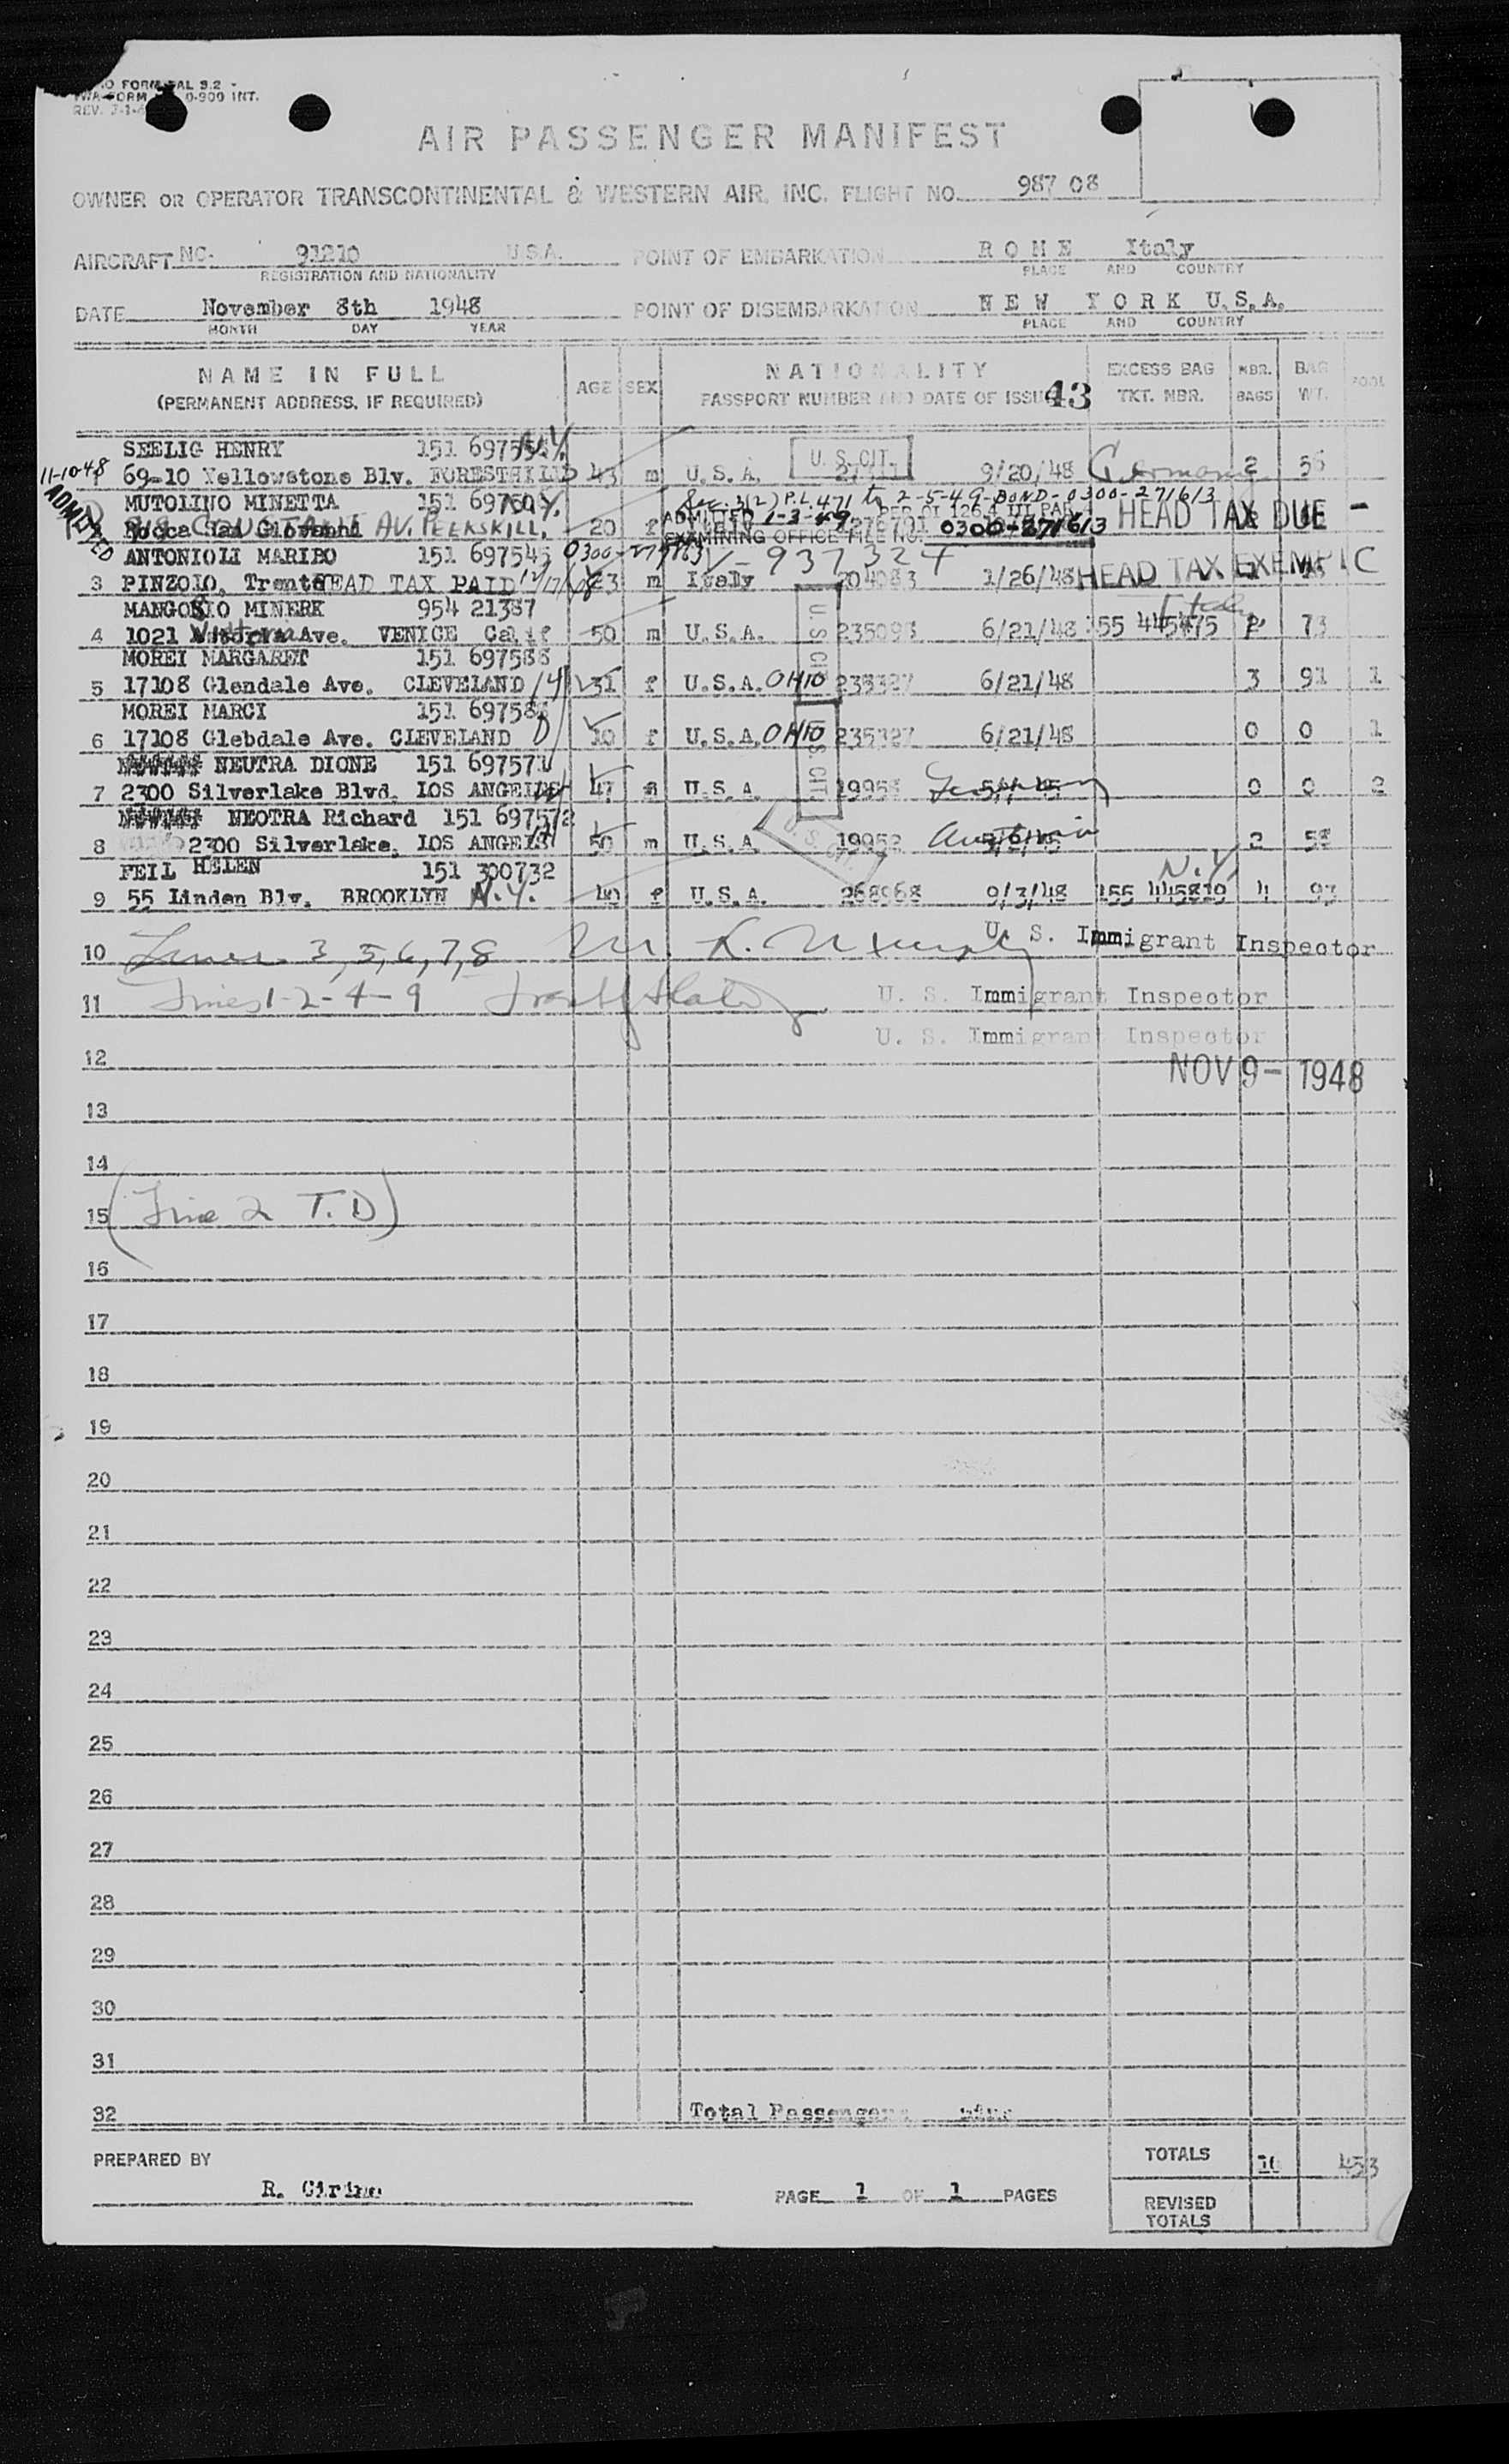 FORM
TWA FORM 0-900 INT.
REV.
AIR PASSENGER MANIFEST
OWNER OR OPERATOR TRANSCONTINENTAL & WESTERN AIR, INC. FLIGHT NO. 987 08
AIRCRAFT NO. 91210 U.S.A. POINT OF EMBARKATION ROME Italy
REGISTRATION AND NATIONALITY PLACE AND COUNTRY
DATE November 8th 1948 POINT OF DISEMBARKATION NEW YORK U.S.A.
MONTH DAY YEAR PLACE AND COUNTRY
NAME IN FULL AGE SEX NATIONALITY EXCESS BAG NBR. BAG POOL
(PERMANENT ADDRESS, IF REQUIRED) PASSPORT NUMBER AND DATE OF ISSU 43 TKT. NBR. BAGS WT.
SEELIG HENRY 151 N.Y. U.S. CIT.
11-10-48 69-10 Yellowstone Blv. FORESTHILLS 43 m U.S.A. 9/20/48 Germany 2
ADMITTED MUTOLINO MINETTA 151 N.Y. Sec. 3(2) P.L. 471 to 2-5-49-BOND-0300-271613
Rocca San Giovanni AV. PEEKSKILL, 20 f ADMITTED 1-3-49 PER OI 126.4 III PAR. HEAD TAX DUE -
EXAMINING OFFICE FILE NO. 0300-271613
ANTONIOLI MARINO 151 697545 V-937327
3 PINZOLO, Trento HEAD TAX PAID 12/17/48 23 m Italy 204083 1/26/48 HEAD TAX EXEMPT C
MANGOSIO MINERK 954 21387 Italy
4 1021 Ave. VENICE Calif 50 m U.S.A. U.S. CIT. 235093 6/21/48 155 445475 2 73
MOREI MARGARET 151 697588
5 17108 Glendale Ave. CLEVELAND 31 f U.S.A. OHIO 235327 6/21/48 3 91 1
MOREI MARCI 151
6 17108 Glebdale Ave. CLEVELAND 10 f U.S.A. OHIO 235327 6/21/48 0 0 1
NEUTRA DIONE 151 697571 U.S. CIT.
7 2300 Silverlake Blvd. LOS ANGELES 47 U.S.A. 19953 0 0 2
NEOTRA Richard 151 697572
8 2300 Silverlake, LOS ANGELES 50 m U.S.A. 19952 Austria 2
FEIL HELEN 151 300732 N.Y.
9 55 Linden Blv. BROOKLYN N.Y. 40 f U.S.A. 268968 9/3/48 155 445819 4 93
10 Lines 3, 5, 6, 7, 8 U. S. Immigrant Inspector
11 Lines 1-2-4-9 U. S. Immigrant Inspector
U. S. Immigrant Inspector
12 NOV 9- 1948
13
14
15 (Line 2 T.D)
16
17
18
19
20
21
22
23
24
25
26
27
28
29
30
31
32 Total Passengers nine
PREPARED BY TOTALS 453
R. Cirino PAGE 1 OF 1 PAGES REVISED
TOTALS